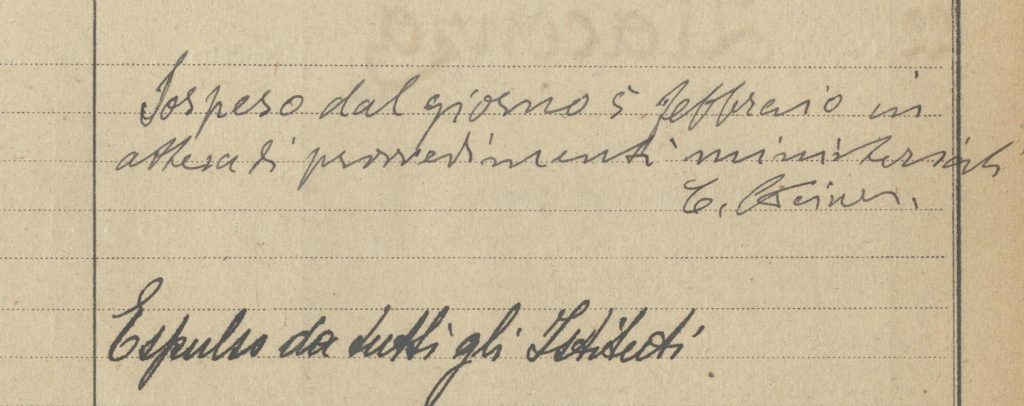 Sospeso dal giorno 5 febbraio in
attesa di provvedimenti ministeriali
C. Steiner.
Espulso da tutti gli Istituti